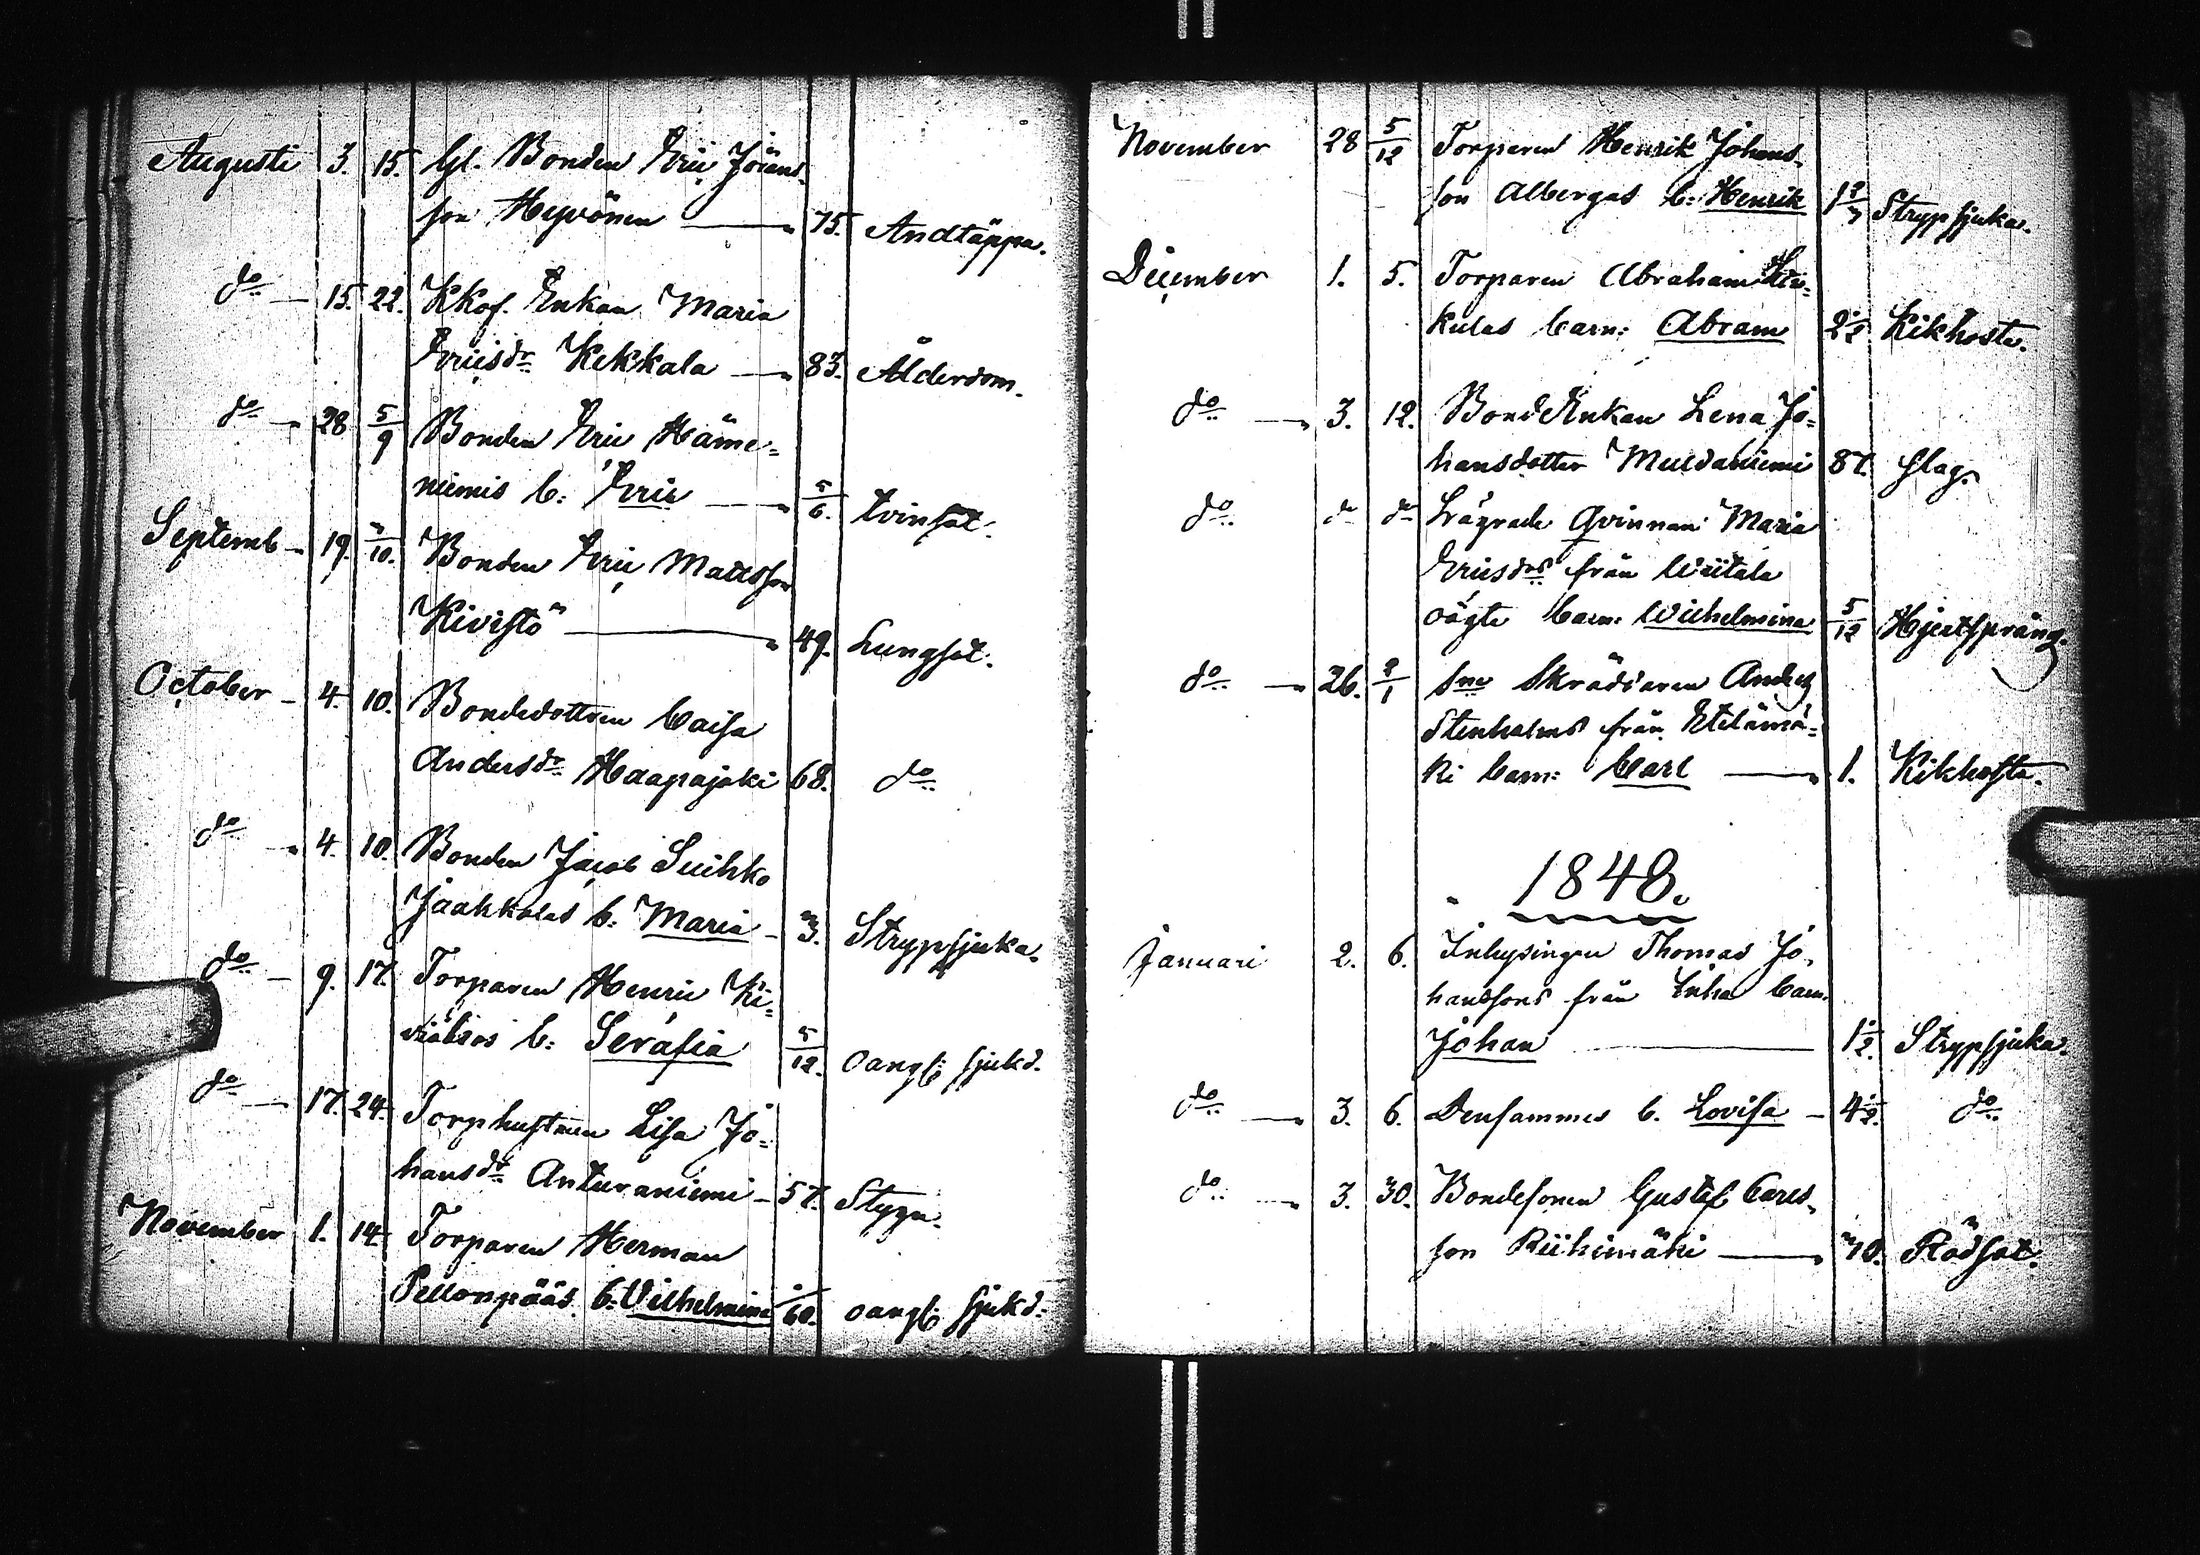 Augusti 3. 15. Gl. Bonden Eric Johans-
son Heyvönen — 75. Andtäppa.
do — 15. 22. Kkof. Enkan Maria
Ericsdr Kekkala — 83. Ålderdom.
do — 28 5/9 Bonden Eric Häme-
niemis b: Eric — 5/6. tvinsot.
Septemb — 19. 3/10. Bonden Eric Mattsson
Kivistö — 49. Lungsot.
October — 4. 10. Bondedottren Caisa
Andersdr Haapajoki 68. do
do — 4. 10. Bonden Jacob Suihko
Jaakkolas b: Maria — 3. Strypsjuka.
do — 9. 17. Torparen Henric Ki-
b: Serafia 5/12. oangf: sjukd.
do — 17. 24. Torphustrun Lisa Jo-
hansdr Anturaniemi — 57. Stygn.
November 1. 14. Torparen Herman
Pellonpääs b: Vilhelmina /60. oangf: sjukd:
November 28 5/12 Torparen Henrik Johans-
son Albergas b: Henrik 1 Strypsjuka.
December 1. 5. Torparen Abraham
kulas barn: Abram 2 1/2 Kikhosta.
do — 3. 12. Bond Enkan Lena Jo-
hansdotter Muldaniemi 87. Slag.
do do do Lägrade Qvinnan Maria
Ericsdrs från Wiitala
oägte barn: Wilhelmina 5/12 Hjertspräng.
do — 26. 2/1 Skräddaren Anders
Stenholms från Etelämä-
ki barn: Carl — 1. Kikhosta.
1848.
Januari 2. 6. Inhysingen Thomas Jo-
hanssons från Inha barn
Johan — 1 1/2. Strypsjuka.
do — 3. 6. Densammes b. Lovisa — 4 1/2. do
do — 3. 30. Bondesonen Gustaf Carls-
son Riihimäki — 70. Rödsot.